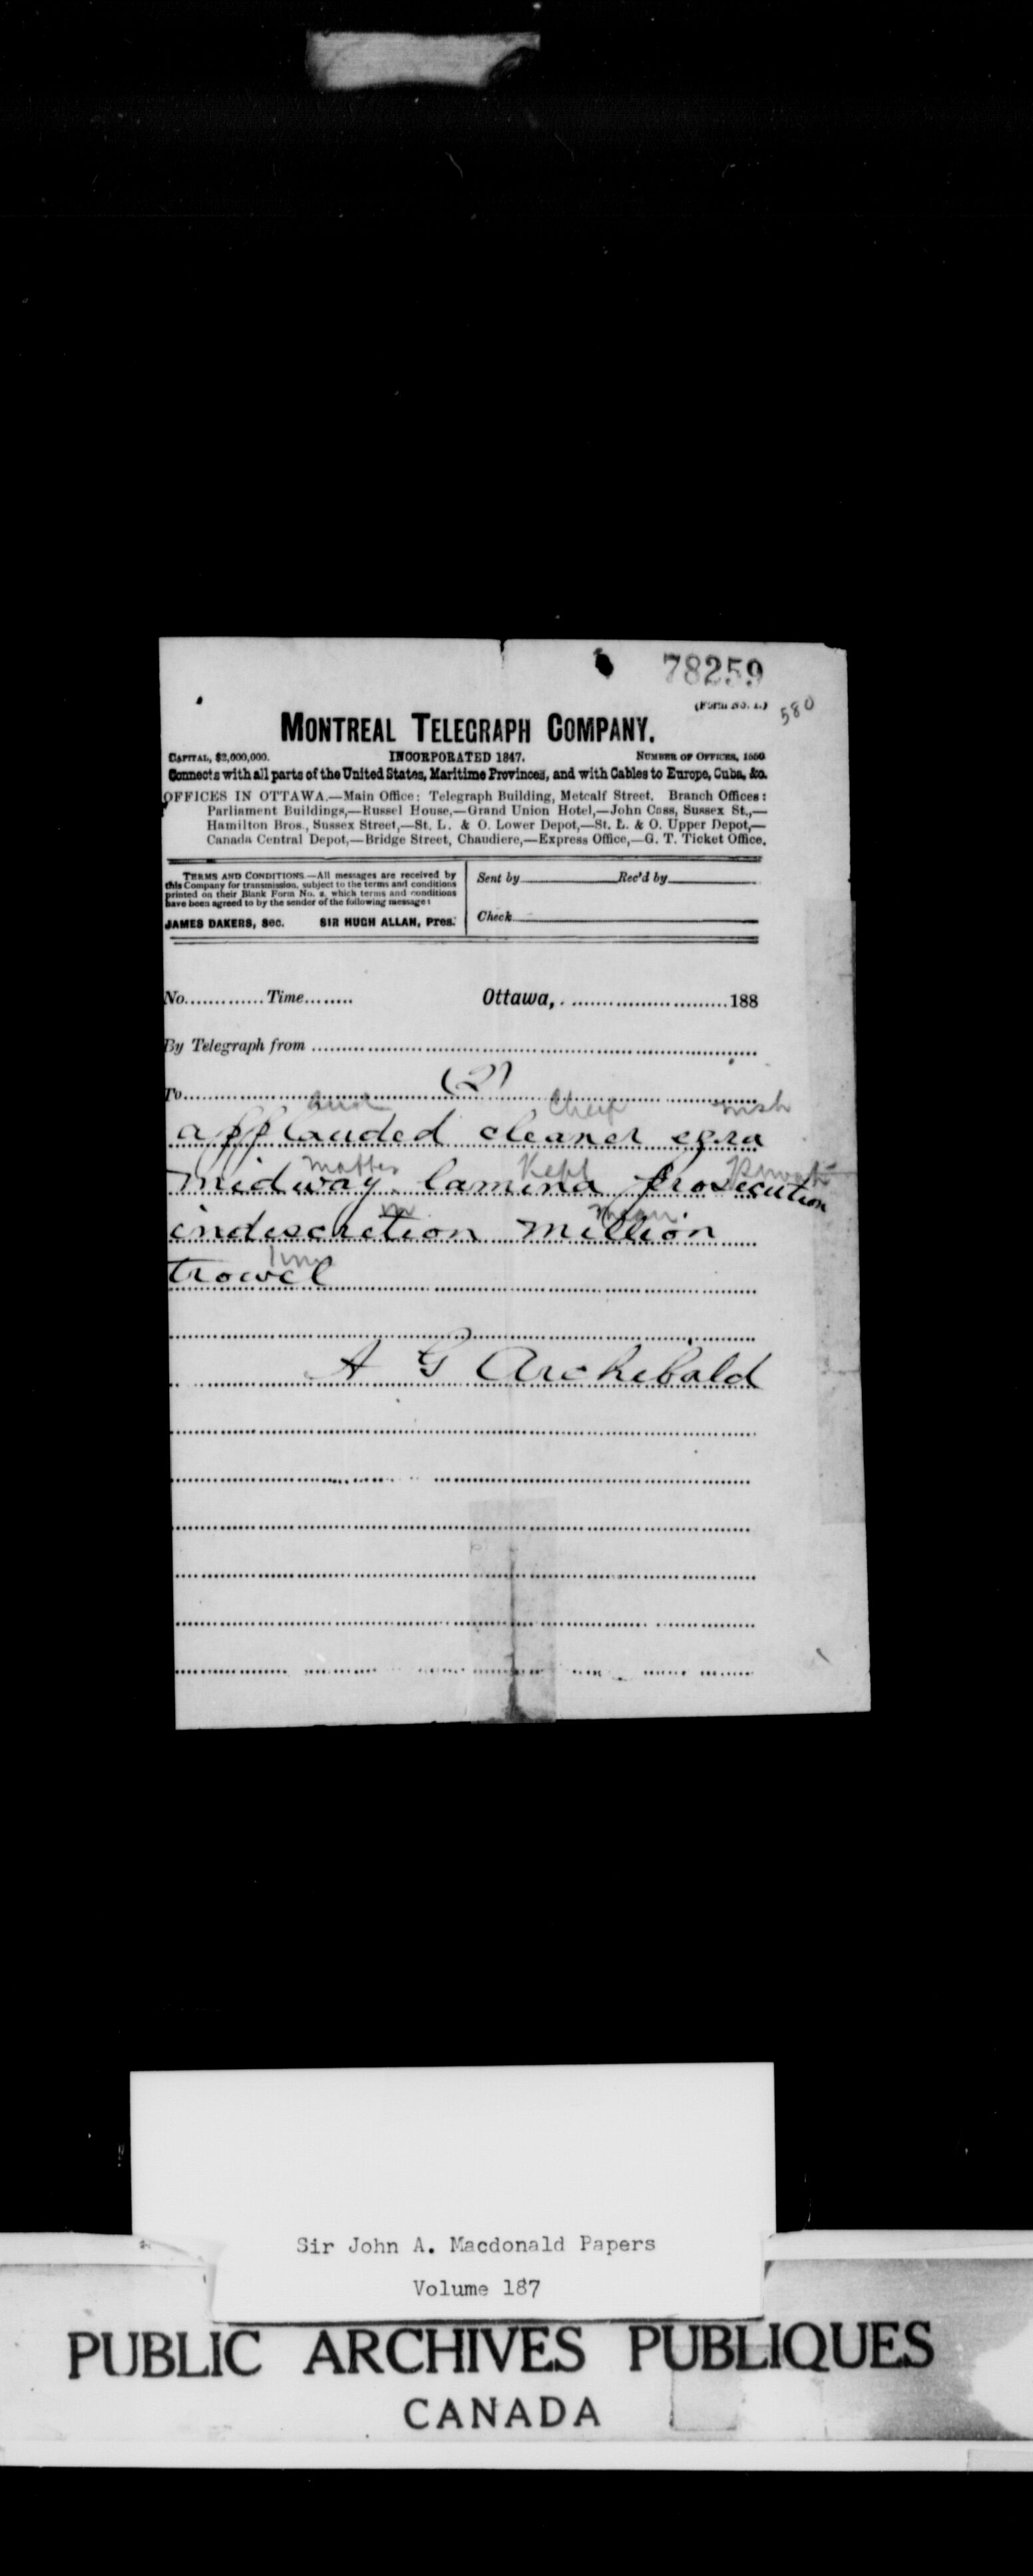 78259
(Form No. 1.)
580
MONTREAL TELEGRAPH COMPANY.
CAPITAL, $2,000,000. INCORPORATED 1847. NUMBER OF OFFICES,
Connects with all parts of the United States, Maritime Provinces, and with Cables to Europe, Cuba, &c.
OFFICES IN OTTAWA.—Main Office: Telegraph Building, Metcalf Street. Branch Offices:
Parliament Buildings,—Russel House,—Grand Union Hotel,—John Coss, Sussex St.,—
Hamilton Bros., Sussex Street,—St. L. & O. Lower Depot,—St. L. & O. Upper Depot,—
Canada Central Depot,—Bridge Street, Chaudiere,—Express Office,—G. T. Ticket Office.
TERMS AND CONDITIONS.—All messages are received by
this Company for transmission, subject to the terms and conditions
printed on their Blank Form No. 2, which terms and conditions
have been agreed to by the sender of the following message:
JAMES DAKERS, Sec. SIR HUGH ALLAN, Pres.
Sent by Rec'd by
Check
No. Time Ottawa, 188
By Telegraph from
To (2)
and Chief wish
applauded cleaner ezra
matter Kept Private
midway lamina prosecution
in mean
indiscretion million
time
trowel
A G Archibald
Sir John A. Macdonald Papers
Volume 187
PUBLIC ARCHIVES PUBLIQUES
CANADA